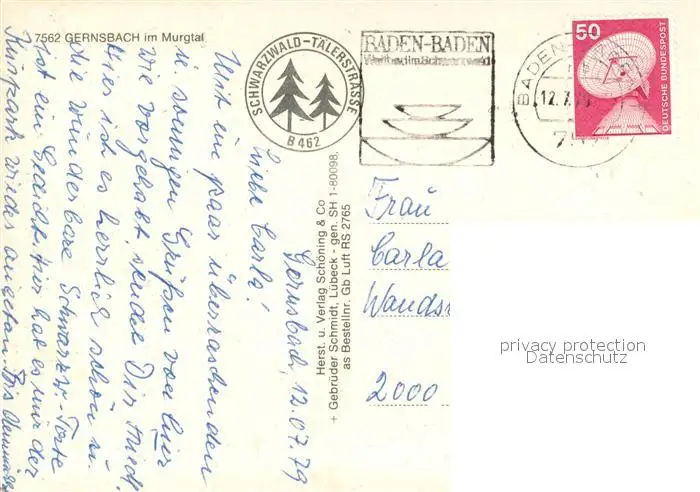 7562 GERNSBACH im Murgtal
SCHWARZWALD-TÄLERSTRASSE
B 462
BADEN-BADEN
Weltbad im Schwarzwald
BADEN-
12.7.79
50
DEUTSCHE BUNDESPOST
Herst. u. Verlag Schöning & Co
+ Gebrüder Schmidt, Lübeck - gen. SH 1-80098,
as Bestellnr. Gb Luft RS 2765
Gernsbad, 12.07.79
Liebe Carla!
Mit ein paar überraschenden
u. sonnigen Grüßen von hier
wie vorgehabt, sendet Dir Friedl.
Hier ist es herrlich schön u.
die wunderbare Schwarzw.-Torte
ist ein Gedicht, hier hat es mir der
Kurpark wieder angetan. Bis
Frau
Carla
Wands
2000
privacy protection
Datenschutz